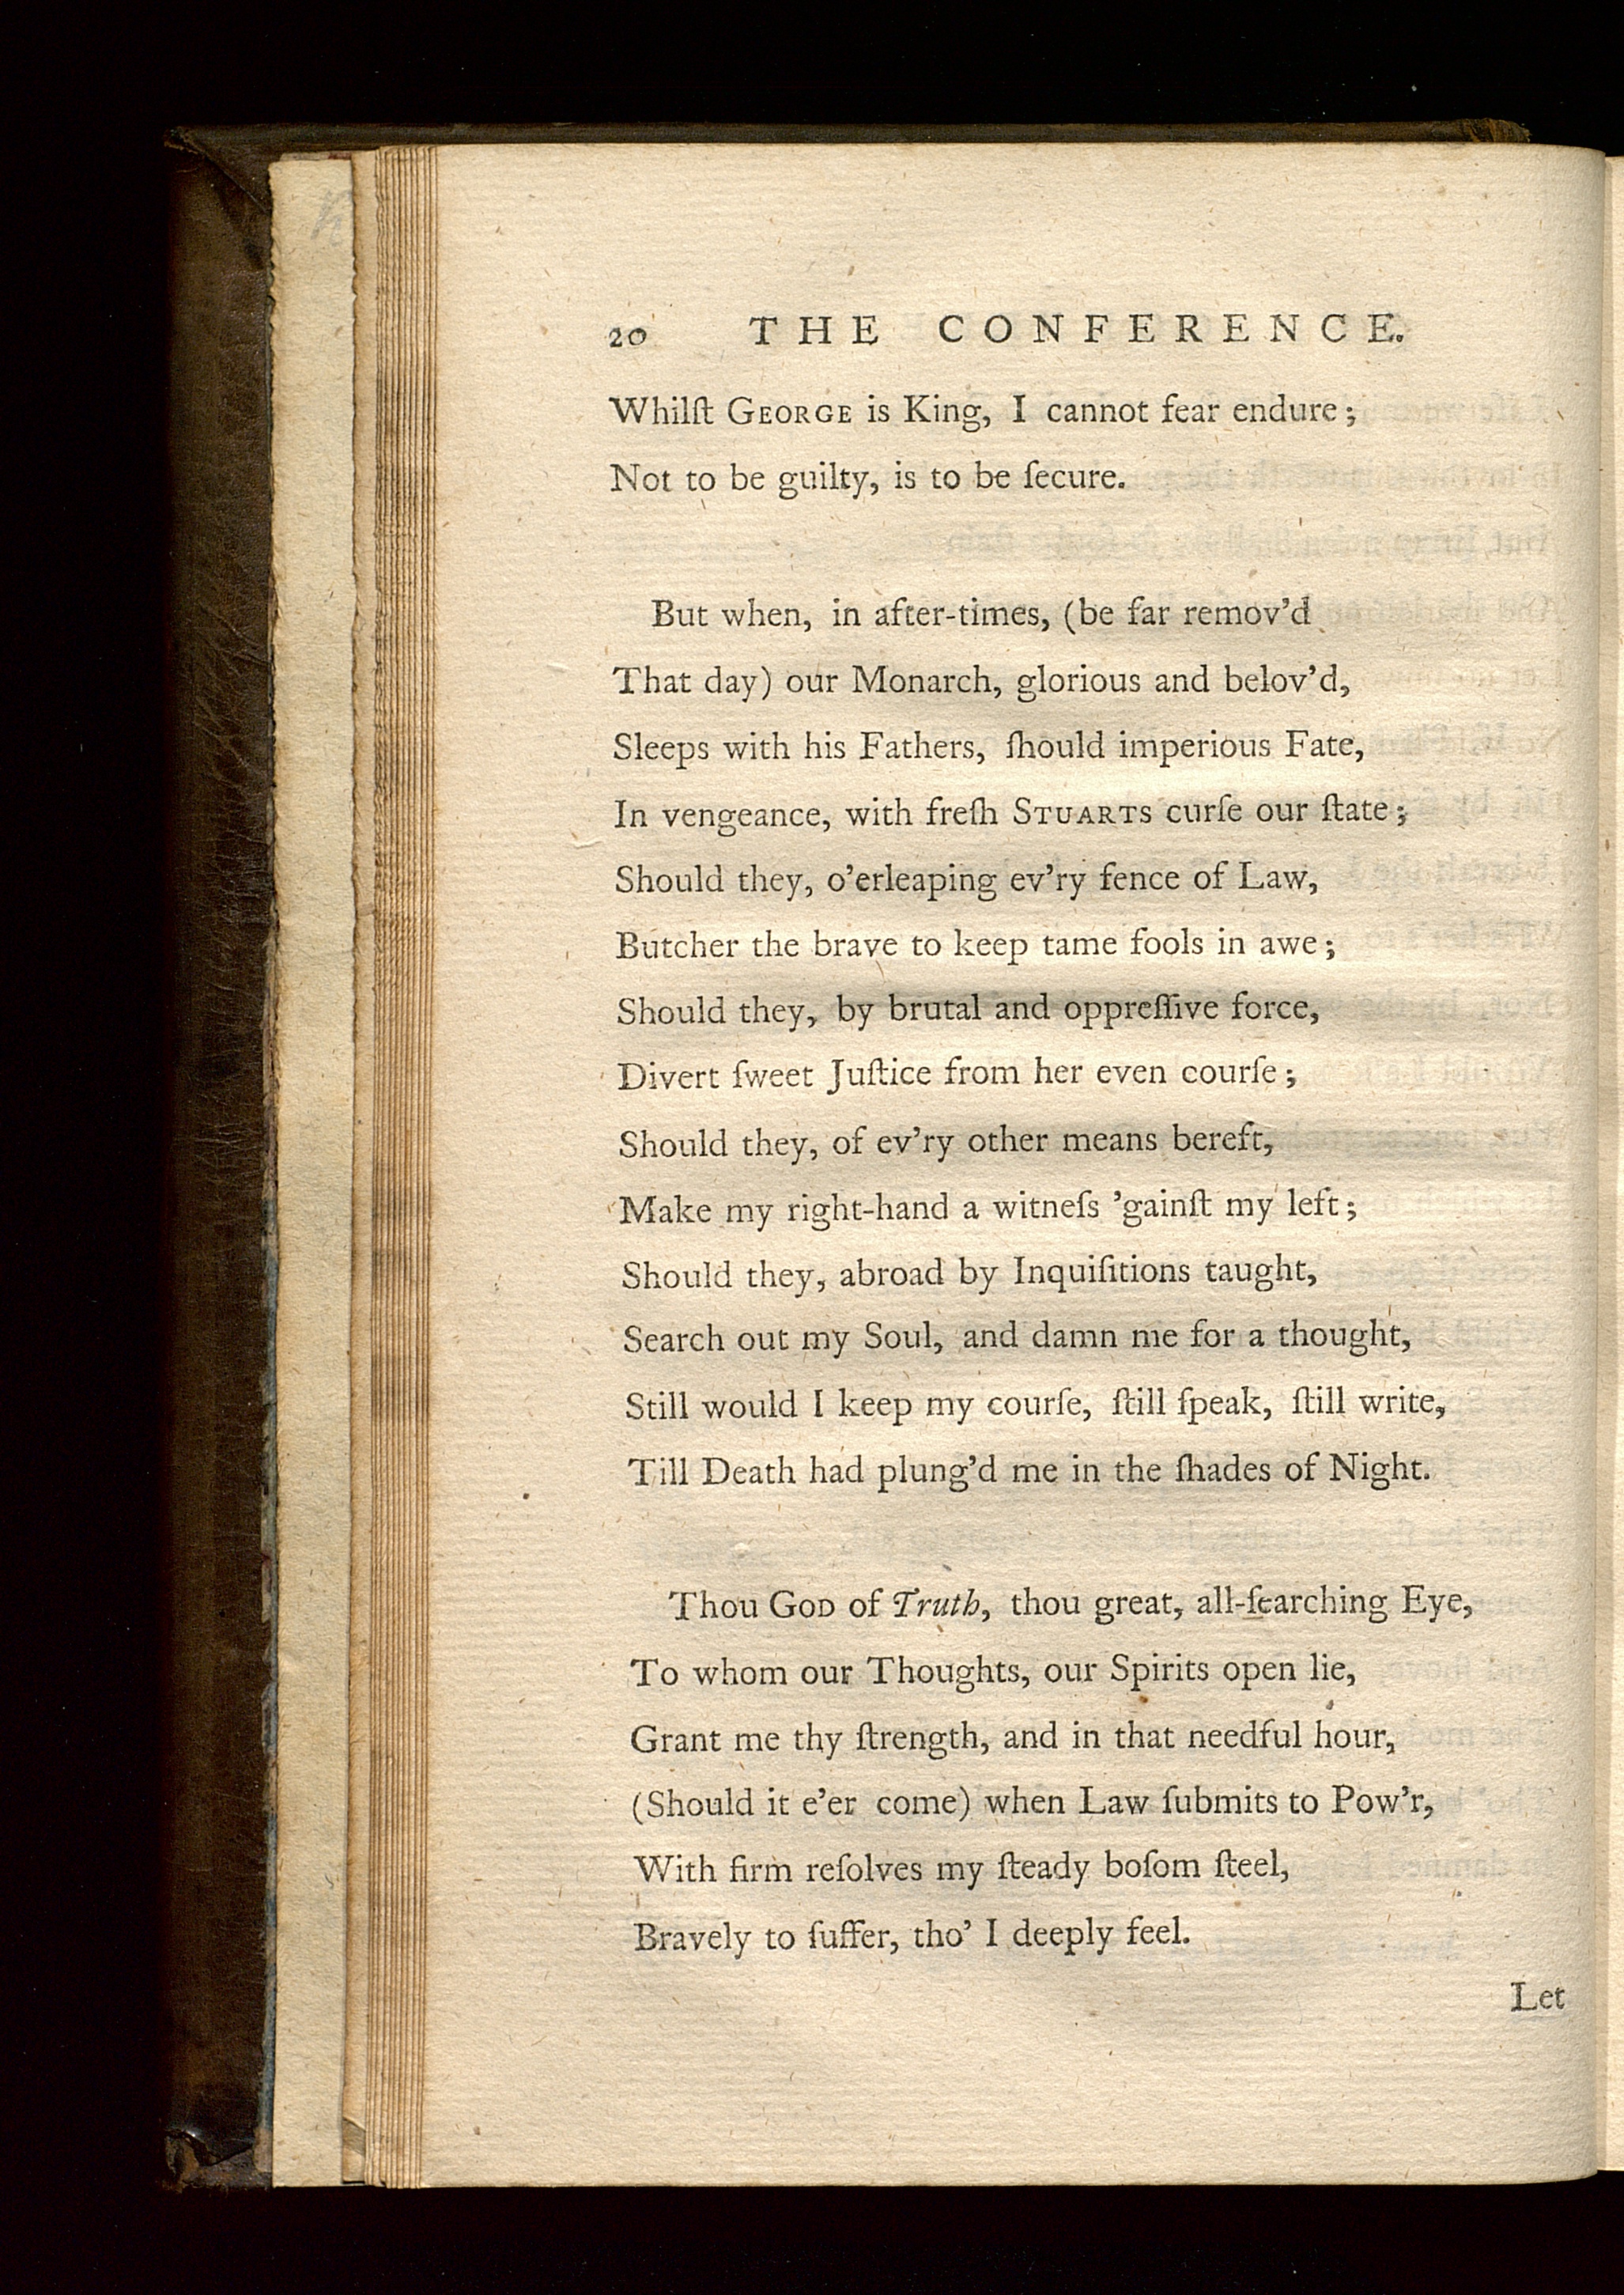 20 THE CONFERENCE.
Whilſt GEORGE is King, I cannot fear endure;
Not to be guilty, is to be ſecure.
But when, in after-times, (be far remov'd
That day) our Monarch, glorious and belov'd,
Sleeps with his Fathers, ſhould imperious Fate,
In vengeance, with freſh STUARTS curſe our ſtate;
Should they, o'erleaping ev'ry fence of Law,
Butcher the brave to keep tame fools in awe;
Should they, by brutal and oppreſſive force,
Divert ſweet Juſtice from her even courſe;
Should they, of ev'ry other means bereft,
Make my right-hand a witneſs 'gainſt my left;
Should they, abroad by Inquiſitions taught,
Search out my Soul, and damn me for a thought,
Still would I keep my courſe, ſtill ſpeak, ſtill write,
Till Death had plung'd me in the ſhades of Night.
Thou GOD of Truth, thou great, all-ſearching Eye,
To whom our Thoughts, our Spirits open lie,
Grant me thy ſtrength, and in that needful hour,
(Should it e'er come) when Law ſubmits to Pow'r,
With firm reſolves my ſteady boſom ſteel,
Bravely to ſuffer, tho' I deeply feel.
Let